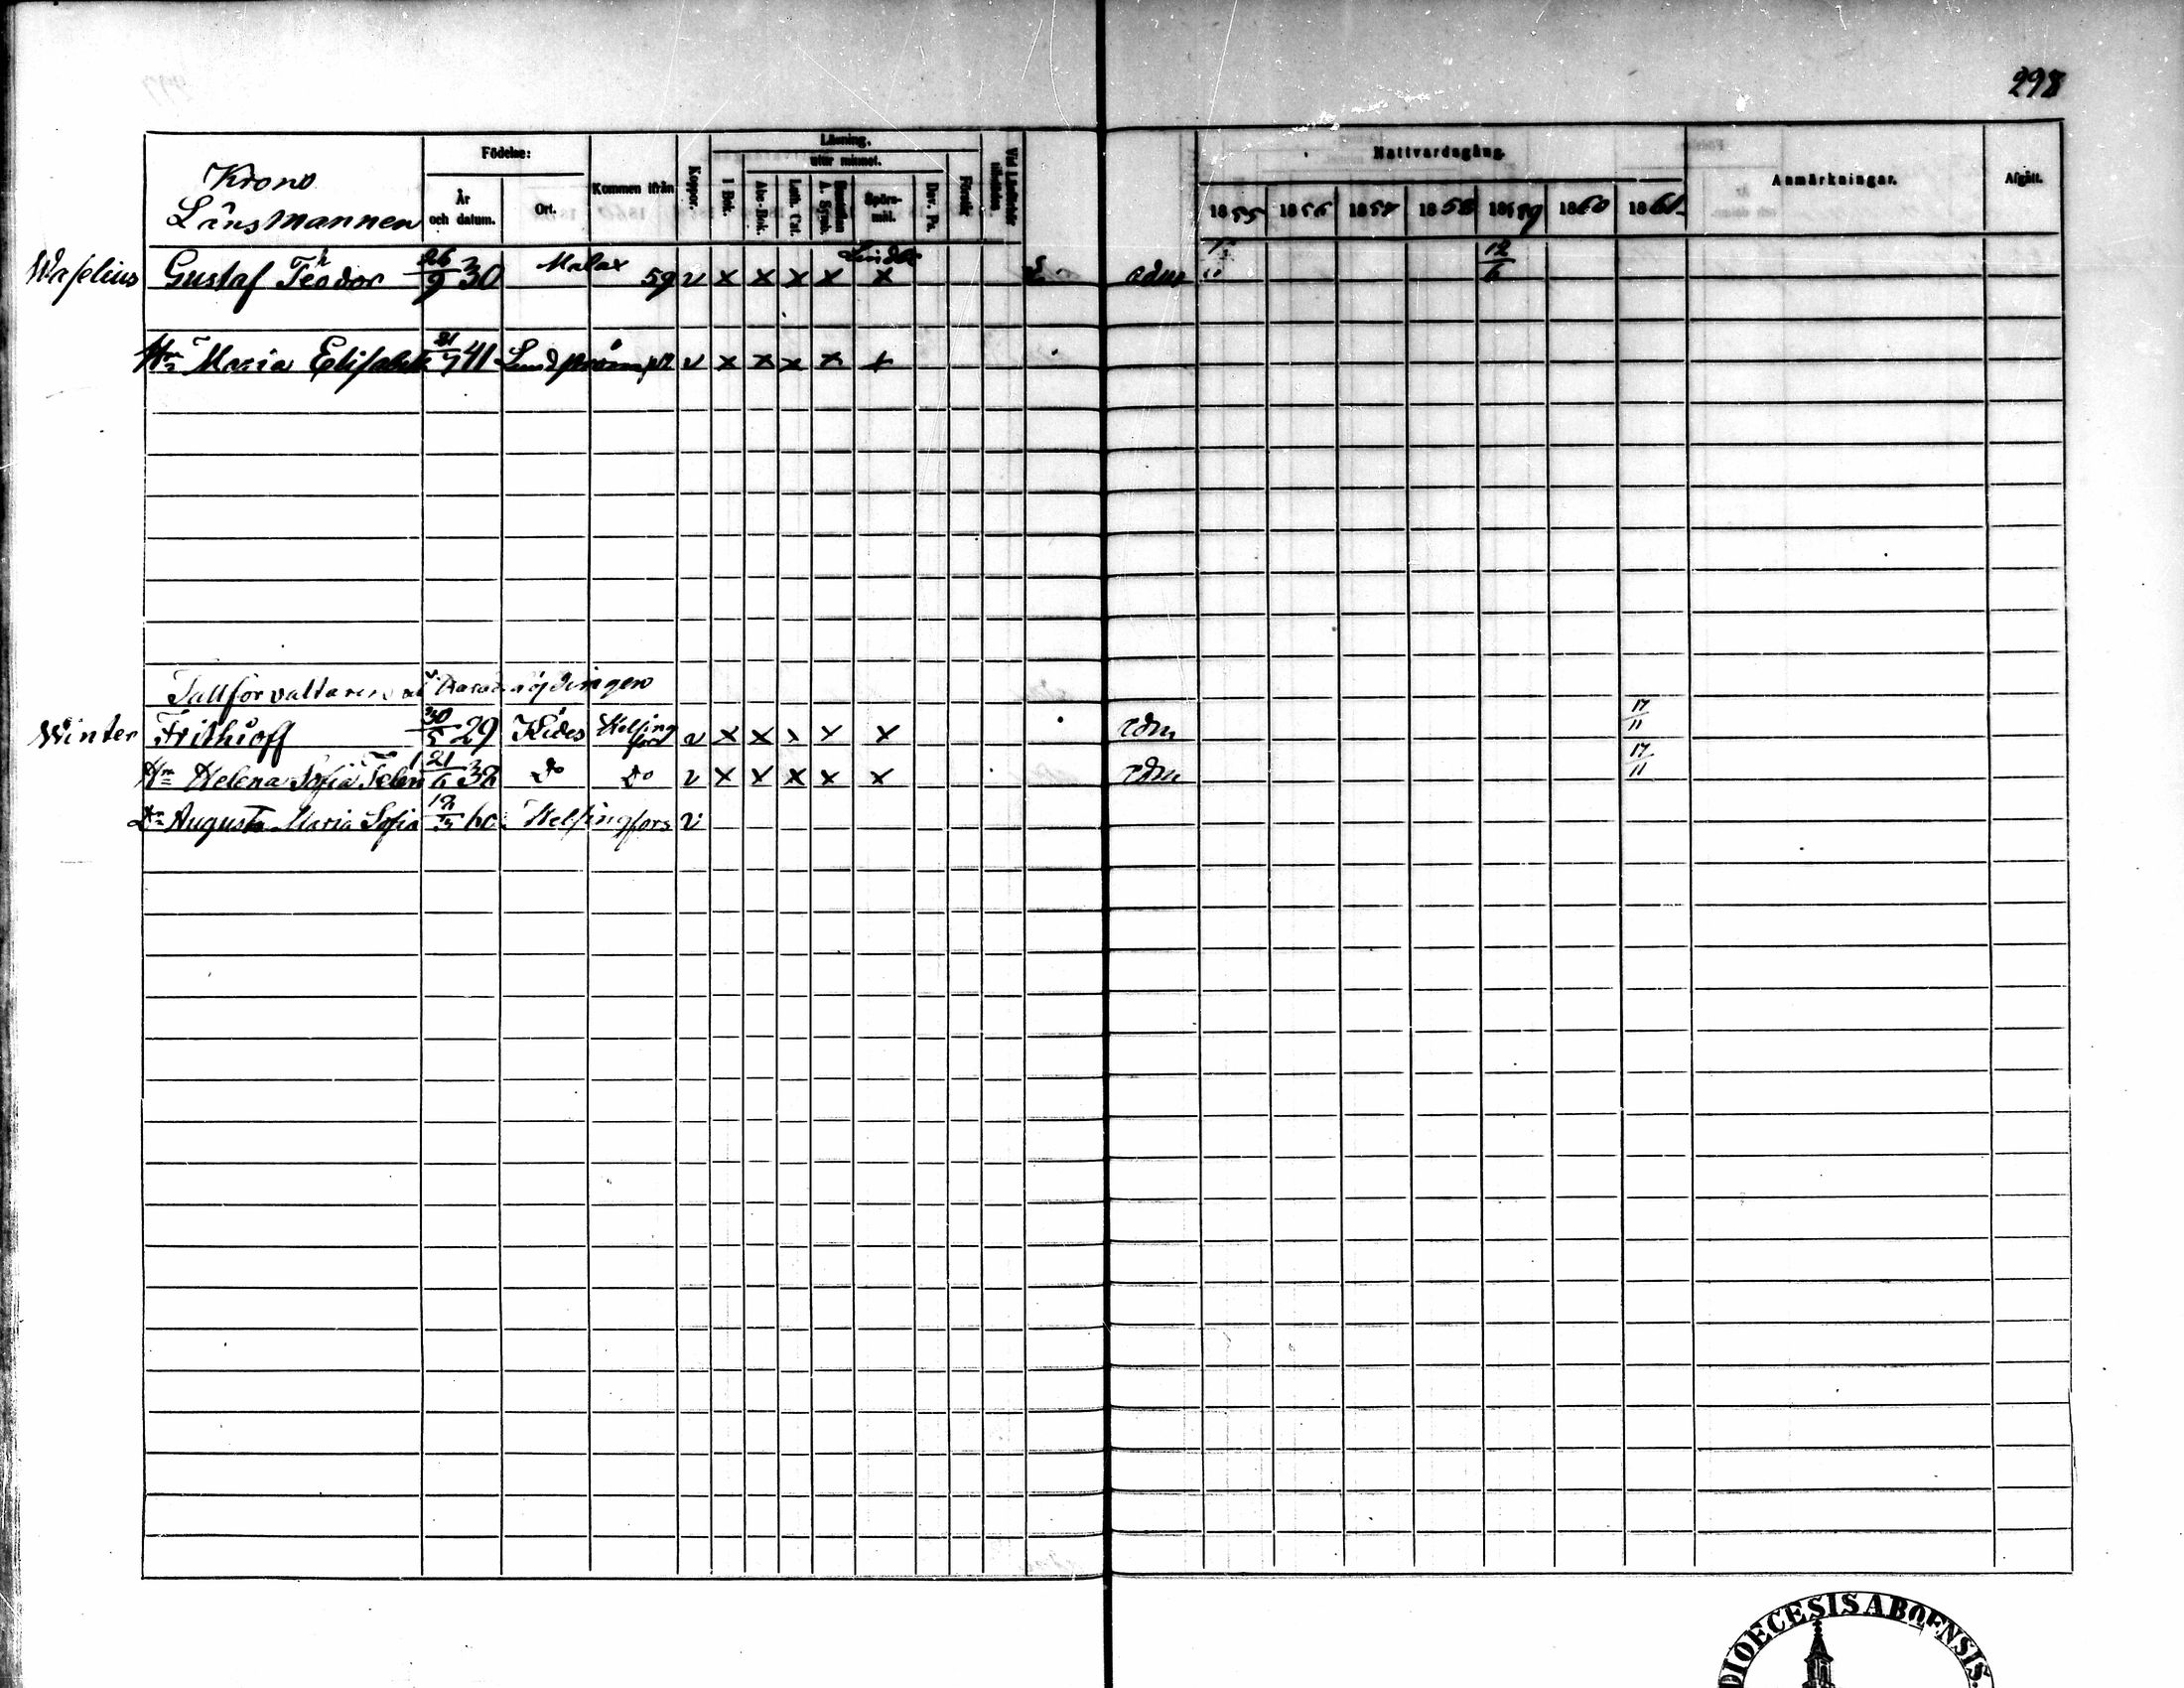 298
Krono
Länsmannen
Födelse:
År
och datum.
Ort.
Kommen ifrån
Koppor.
Läsning.
I Bok.
utur minnet.
Abc-Bok.
Luth. Cat.
A. Symb.
Spörs-
mål.
Dav. Ps.
Förstår
Vid Läseförhör
Nattvardsgång.
1855 1856 1857 1858 1859 1860 1861
Anmärkningar.
Afgått.
Waselius Gustaf Teodor 26/9 30 Malax 59 v x x x x x adm 12/6
Hu Maria Elisabet 21/7 41 v x x x x x
Tullförvaltaren
Winter Frithioff 30/5 29 Kides Helsing
fors v x x x x x adm 17/11
Hu Helena Sofia 21/6 32 Do Do v x x x x x adm 17/11
Dr Augusta Maria Sofia 12 60 Helsingfors v
DIOECESIS ABOENSIS.